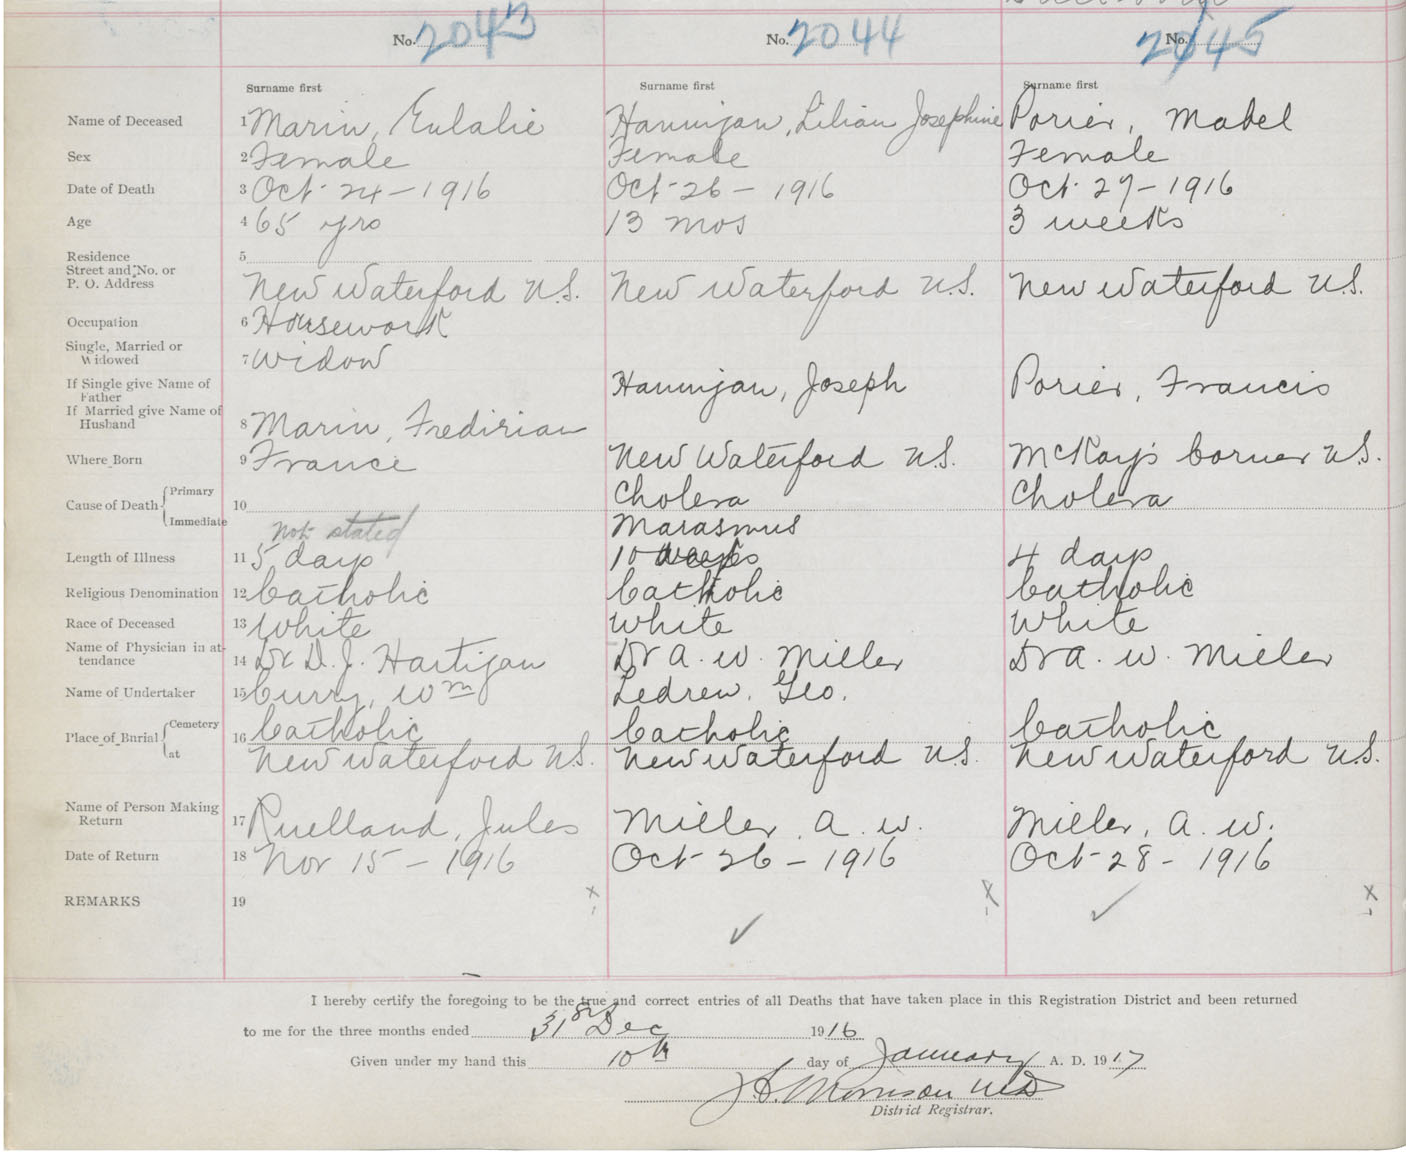 No. 2043 No. 2044 No. 2045
Surname first Surname first Surname first
Name of Deceased 1 Marin, Eulalie Hannigan, Lilian Josephine Porier, Mabel
Sex 2 Female Female Female
Date of Death 3 Oct 24 - 1916 Oct 26 - 1916 Oct 27 - 1916
Age 4 65 yrs 13 mos 3 weeks
Residence 5
Street and No. or
P. O. Address New Waterford N.S. New Waterford N.S. New Waterford N.S.
Occupation 6 Housework
Single, Married or
Widowed 7 Widow
If Single give Name of
Father Hannigan, Joseph Porier, Francis
If Married give Name of
Husband 8 Marin, Fredirian
Where Born 9 France New Waterford N.S. McKay's Corner N.S.
Cause of Death Primary 10 Cholera Cholera
Immediate Not stated Marasmus
Length of Illness 11 5 days 10 4 days
Religious Denomination 12 Catholic Catholic Catholic
Race of Deceased 13 White White White
Name of Physician in at-
tendance 14 Dr D. J. Hartigan Dr A. W. Miller Dr A. W. Miller
Name of Undertaker 15 Curry, Wm Ledrew, Geo.
Place of Burial Cemetery 16 Catholic Catholic Catholic
at New Waterford N.S. New Waterford N.S. New Waterford N.S.
Name of Person Making
Return 17 Ruelland, Jules Miller, A. W. Miller, A. W.
Date of Return 18 Nov 15 - 1916 Oct 26 - 1916 Oct 28 - 1916
REMARKS 19
I hereby certify the foregoing to be the true and correct entries of all Deaths that have taken place in this Registration District and been returned
to me for the three months ended 31st Dec 1916
Given under my hand this 10th day of January A. D. 1917
J. S. Morrison MD
District Registrar.